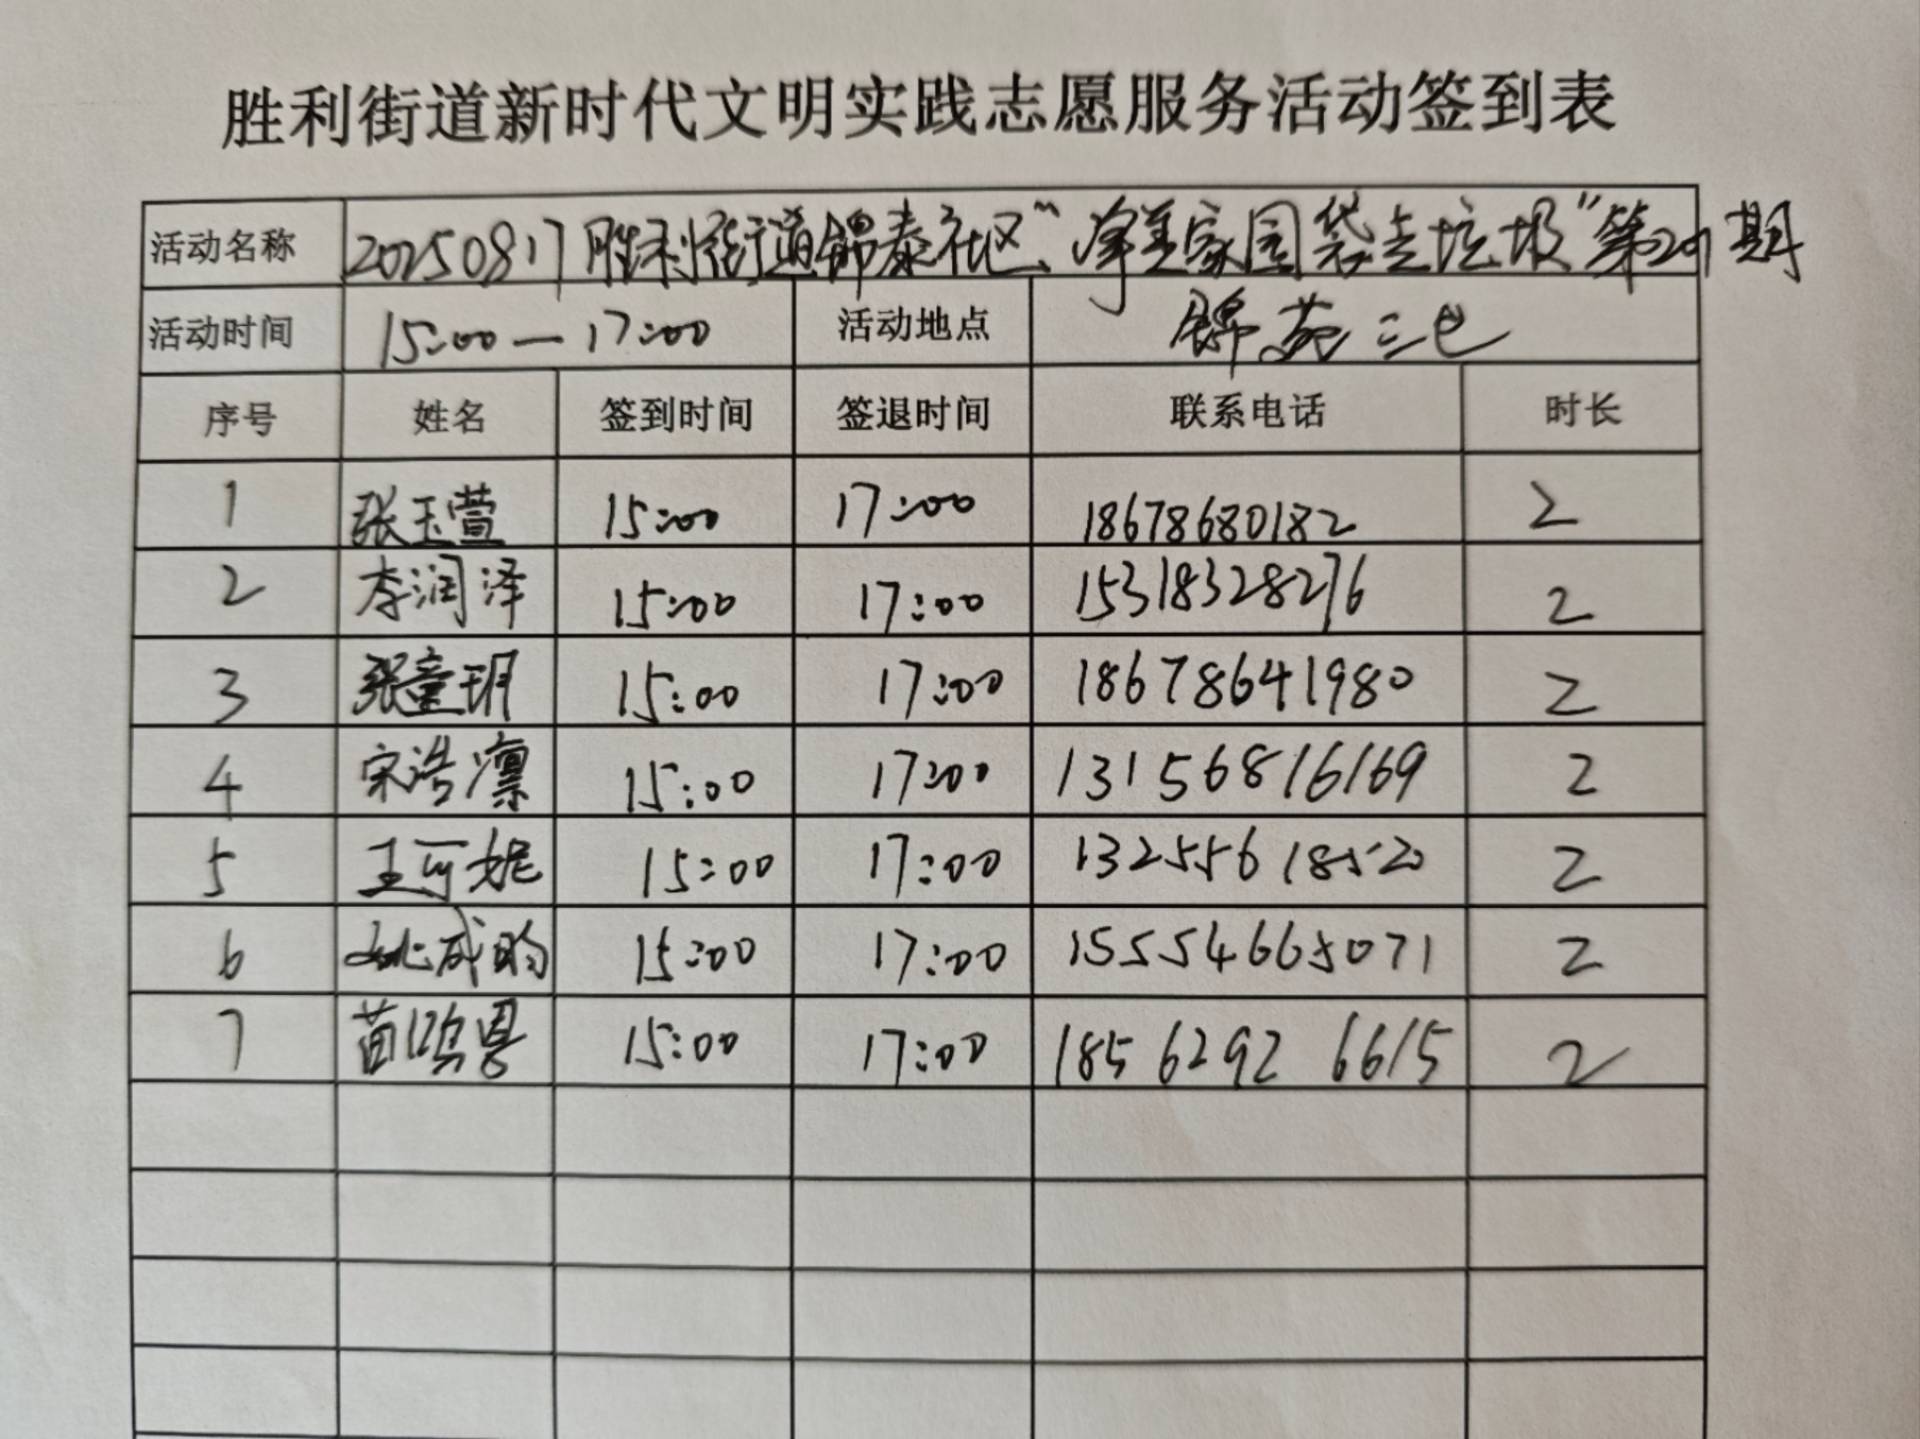 胜利街道新时代文明实践志愿服务活动签到表
活动名称 20250817胜利街道锦泰社区“净美家园袋走垃圾”第201期
活动时间 15:00—17:00 活动地点 锦苑三区
序号 姓名 签到时间 签退时间 联系电话 时长
1 张玉萱 15:00 17:00 18678680182 2
2 李润泽 15:00 17:00 15318328276 2
3 张童玥 15:00 17:00 18678641980 2
4 宋浩凛 15:00 17:00 13156816169 2
5 王可妮 15:00 17:00 13255618520 2
6 姚成昀 15:00 17:00 15554665071 2
7 苗鸿恩 15:00 17:00 185 6292 6615 2